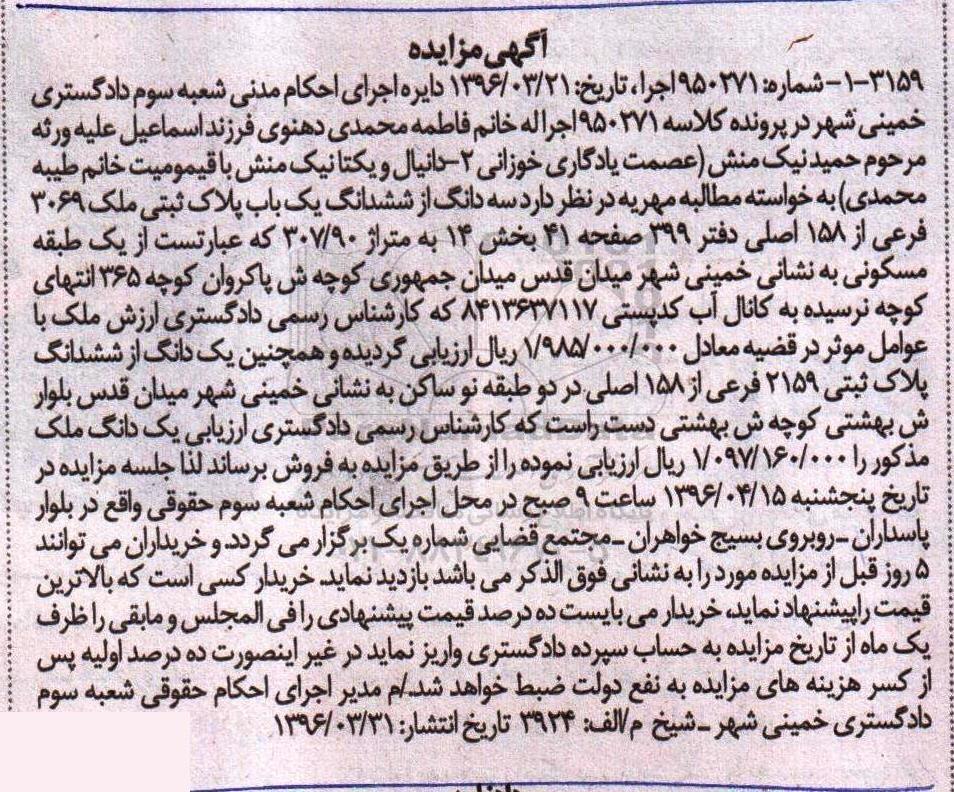 آگهی مزایده
۳۱۵۹-۱- شماره: ۹۵۰۲۷۱ اجرا، تاریخ: ۱۳۹۶/۰۳/۲۱ دایره اجرای احکام مدنی شعبه سوم دادگستری
خمینی شهر در پرونده کلاسه ۹۵۰۲۷۱ اجرا له خانم فاطمه محمدی دهنوی فرزند اسماعیل علیه ورثه
مرحوم حمید نیک منش (عصمت یادگاری خوزانی ۲-دانیال و یکتا نیک منش با قیمومیت خانم طیبه
محمدی) به خواسته مطالبه مهریه در نظر دارد سه دانگ از ششدانگ یک باب پلاک ثبتی ملک ۳۰۶۹
فرعی از ۱۵۸ اصلی دفتر ۳۹۹ صفحه ۴۱ بخش ۱۴ به متراژ ۳۰۷/۹۰ که عبارتست از یک طبقه
مسکونی به نشانی خمینی شهر میدان قدس میدان جمهوری کوچه ش پاکروان کوچه ۳۶۵ انتهای
کوچه نرسیده به کانال آب کدپستی ۸۴۱۳۶۳۷۱۱۷ که کارشناس رسمی دادگستری ارزش ملک با
عوامل موثر در قضیه معادل ۱/۹۸۵/۰۰۰/۰۰۰ ریال ارزیابی گردیده و همچنین یک دانگ از ششدانگ
پلاک ثبتی ۲۱۵۹ فرعی از ۱۵۸ اصلی در دو طبقه نو ساکن به نشانی خمینی شهر میدان قدس بلوار
ش بهشتی کوچه ش بهشتی دست راست که کارشناس رسمی دادگستری ارزیابی یک دانگ ملک
مذکور را ۱/۰۹۷/۱۶۰/۰۰۰ ریال ارزیابی نموده را از طریق مزایده به فروش برساند لذا جلسه مزایده در
تاریخ پنجشنبه ۱۳۹۶/۰۴/۱۵ ساعت ۹ صبح در محل اجرای احکام شعبه سوم حقوقی واقع در بلوار
پاسداران -روبروی بسیج خواهران -مجتمع قضایی شماره یک برگزار می گردد. و خریداران می توانند
۵ روز قبل از مزایده مورد را به نشانی فوق الذکر می باشد بازدید نماید. خریدار کسی است که بالاترین
قیمت را پیشنهاد نماید، خریدار می بایست ده درصد قیمت پیشنهادی را فی المجلس و مابقی را ظرف
یک ماه از تاریخ مزایده به حساب سپرده دادگستری واریز نماید در غیر اینصورت ده درصد اولیه پس
از کسر هزینه های مزایده به نفع دولت ضبط خواهد شد./م مدیر اجرای احکام حقوقی شعبه سوم
دادگستری خمینی شهر -شیخ م/الف: ۳۹۲۴ تاریخ انتشار: ۱۳۹۶/۰۳/۳۱